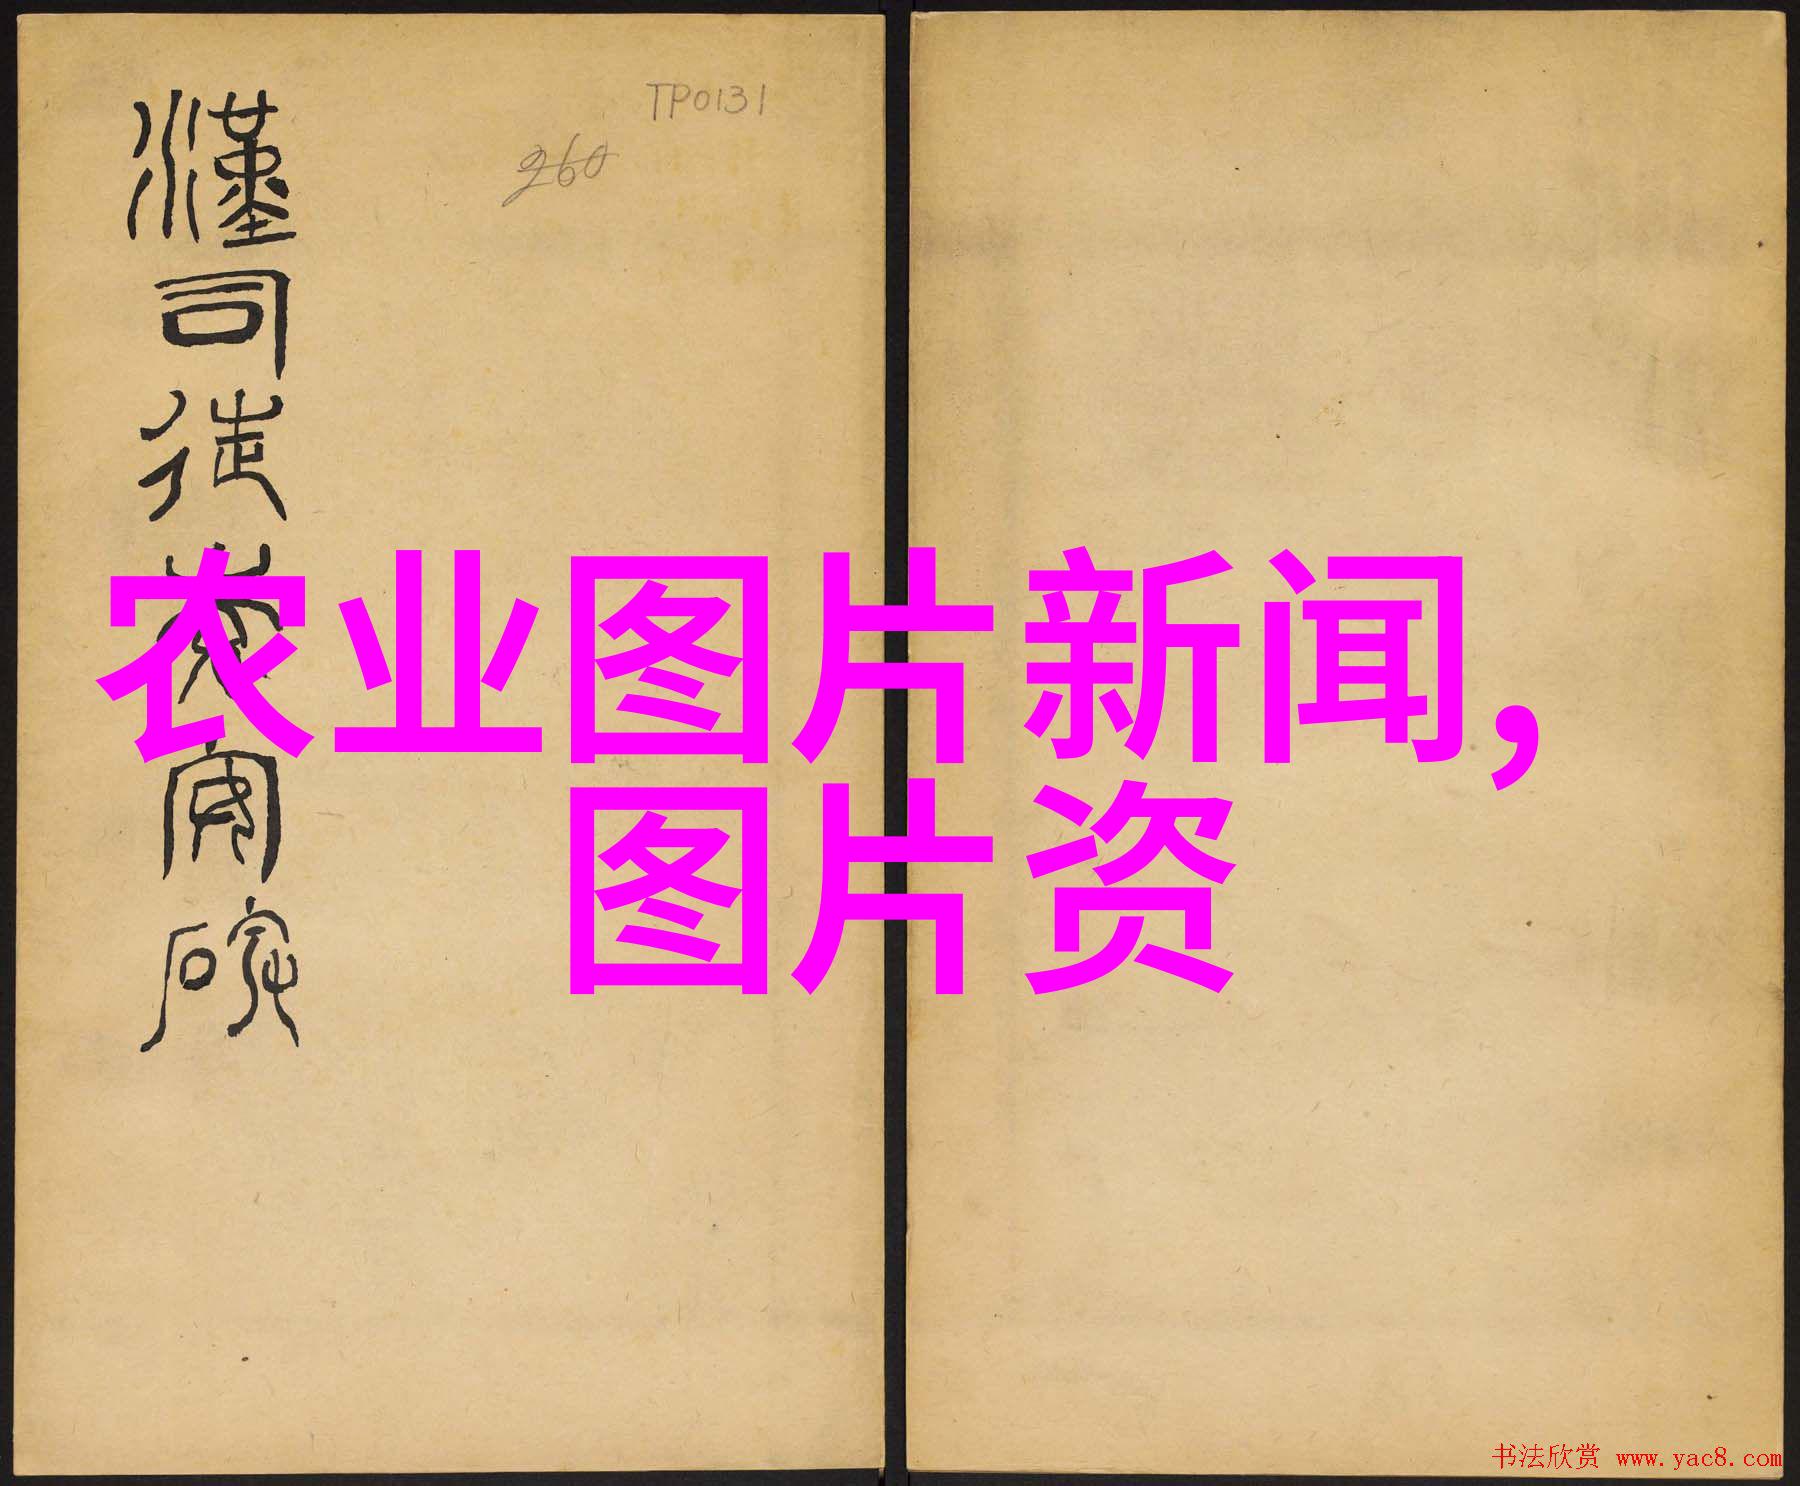 漢司徒袁安碑
TP0131
260
农业图片新闻,
图片资
书法欣赏 www.yac8.com